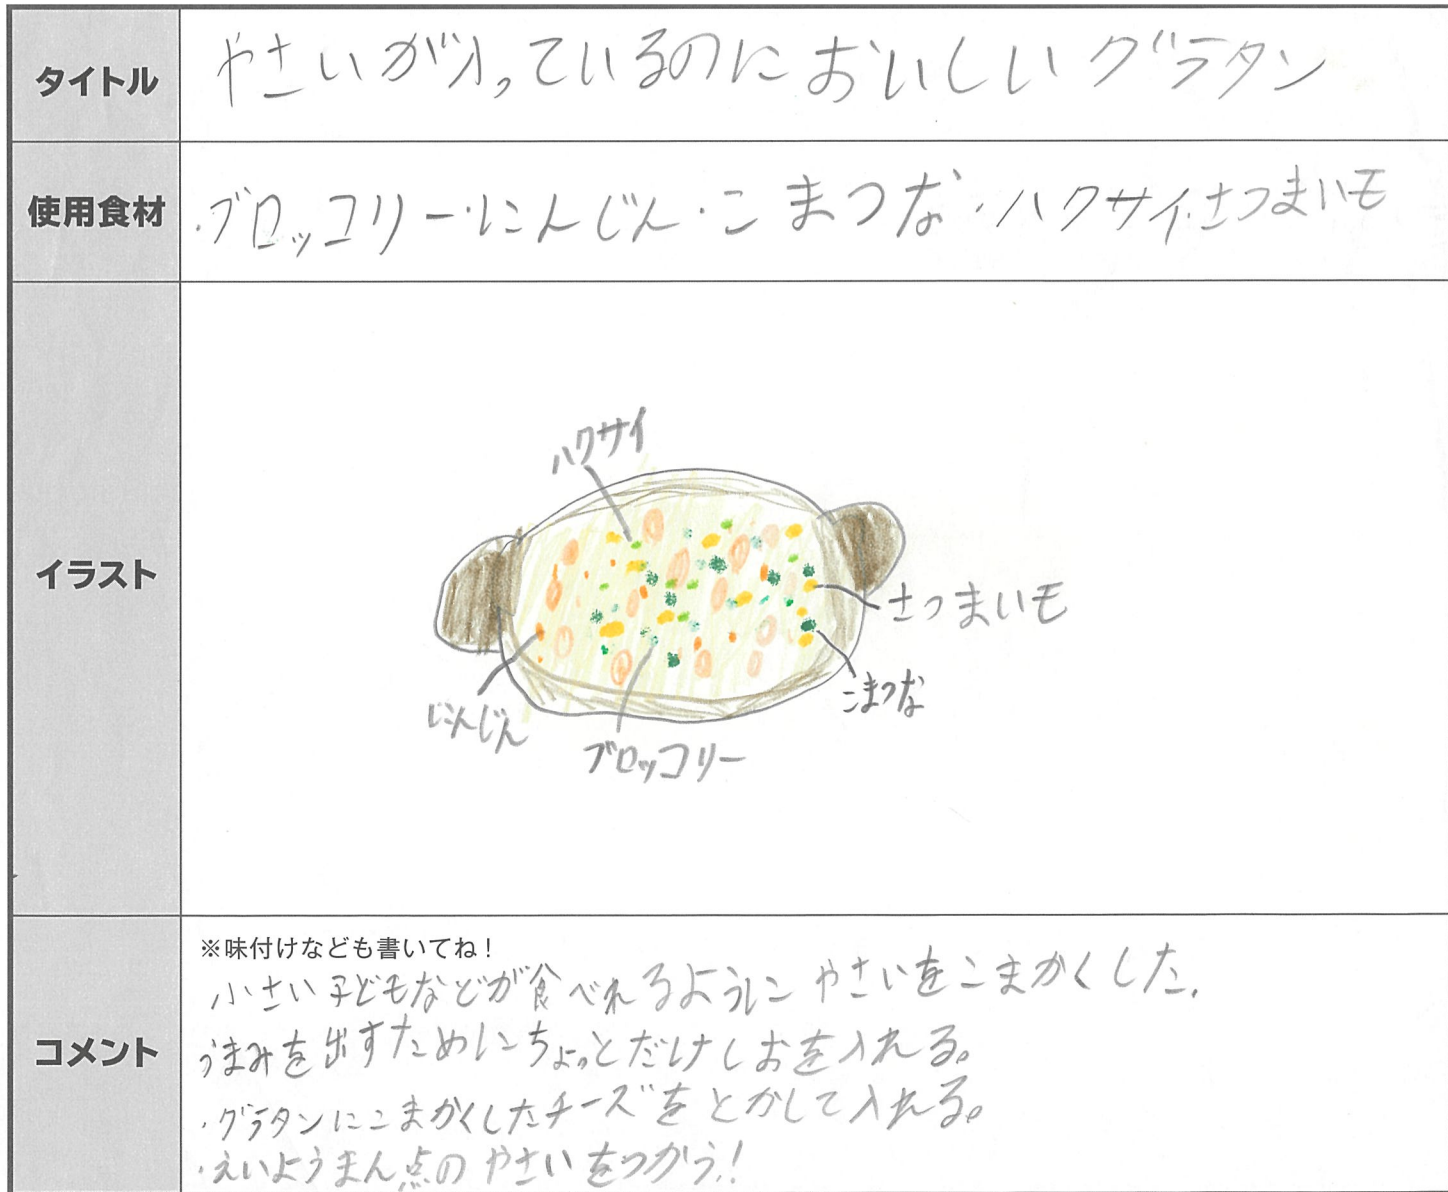 タイトル
やさいが入っているのにおいしいグラタン
使用食材
・ブロッコリー・にんじん・こまつな・ハクサイ・さつまいも
イラスト
ハクサイ
さつまいも
こまつな
にんじん
ブロッコリー
コメント
※味付けなども書いてね!
小さい子どもなどが食べれるようにやさいをこまかくした。
うまみを出すためにちょっとだけしおを入れる。
・グラタンにこまかくしたチーズをとかして入れる。
・えいようまん点のやさいをつかう!